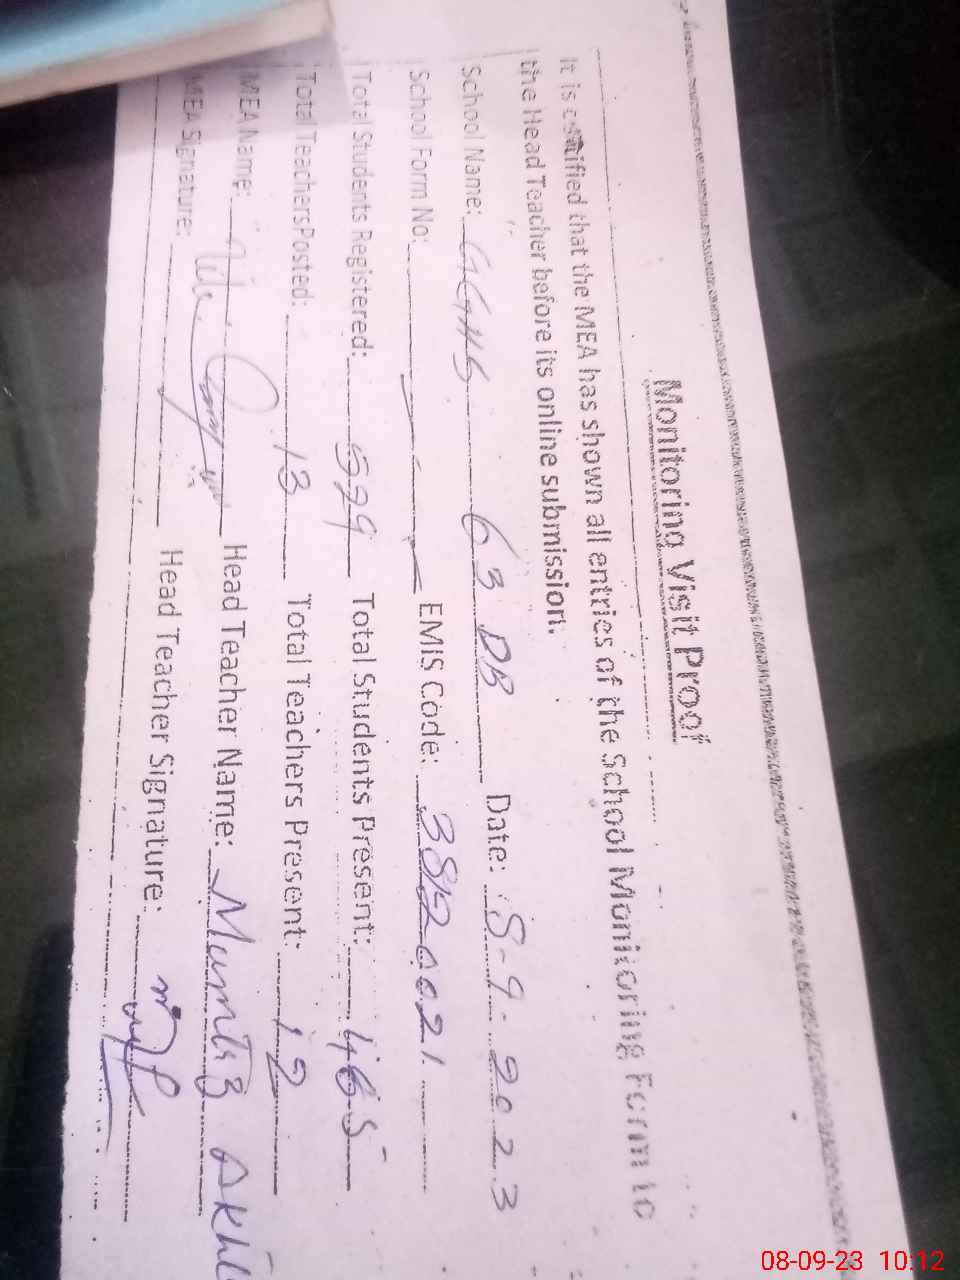 Monitoring Visit Proof
It is certified that the MEA has shown all entries of the School Monitoring Form to
the Head Teacher before its online submission.
School Name: GGHS 63 DB Date: 8-9-2023
School Form No: EMIS Code: 3120021
Total Students Registered: 579 Total Students Present: 465
Total Teachers Posted: 13 Total Teachers Present: 12
MEA Name: Head Teacher Name: Mumtaz
MEA Signature: Head Teacher Signature:
08-09-23 10:12